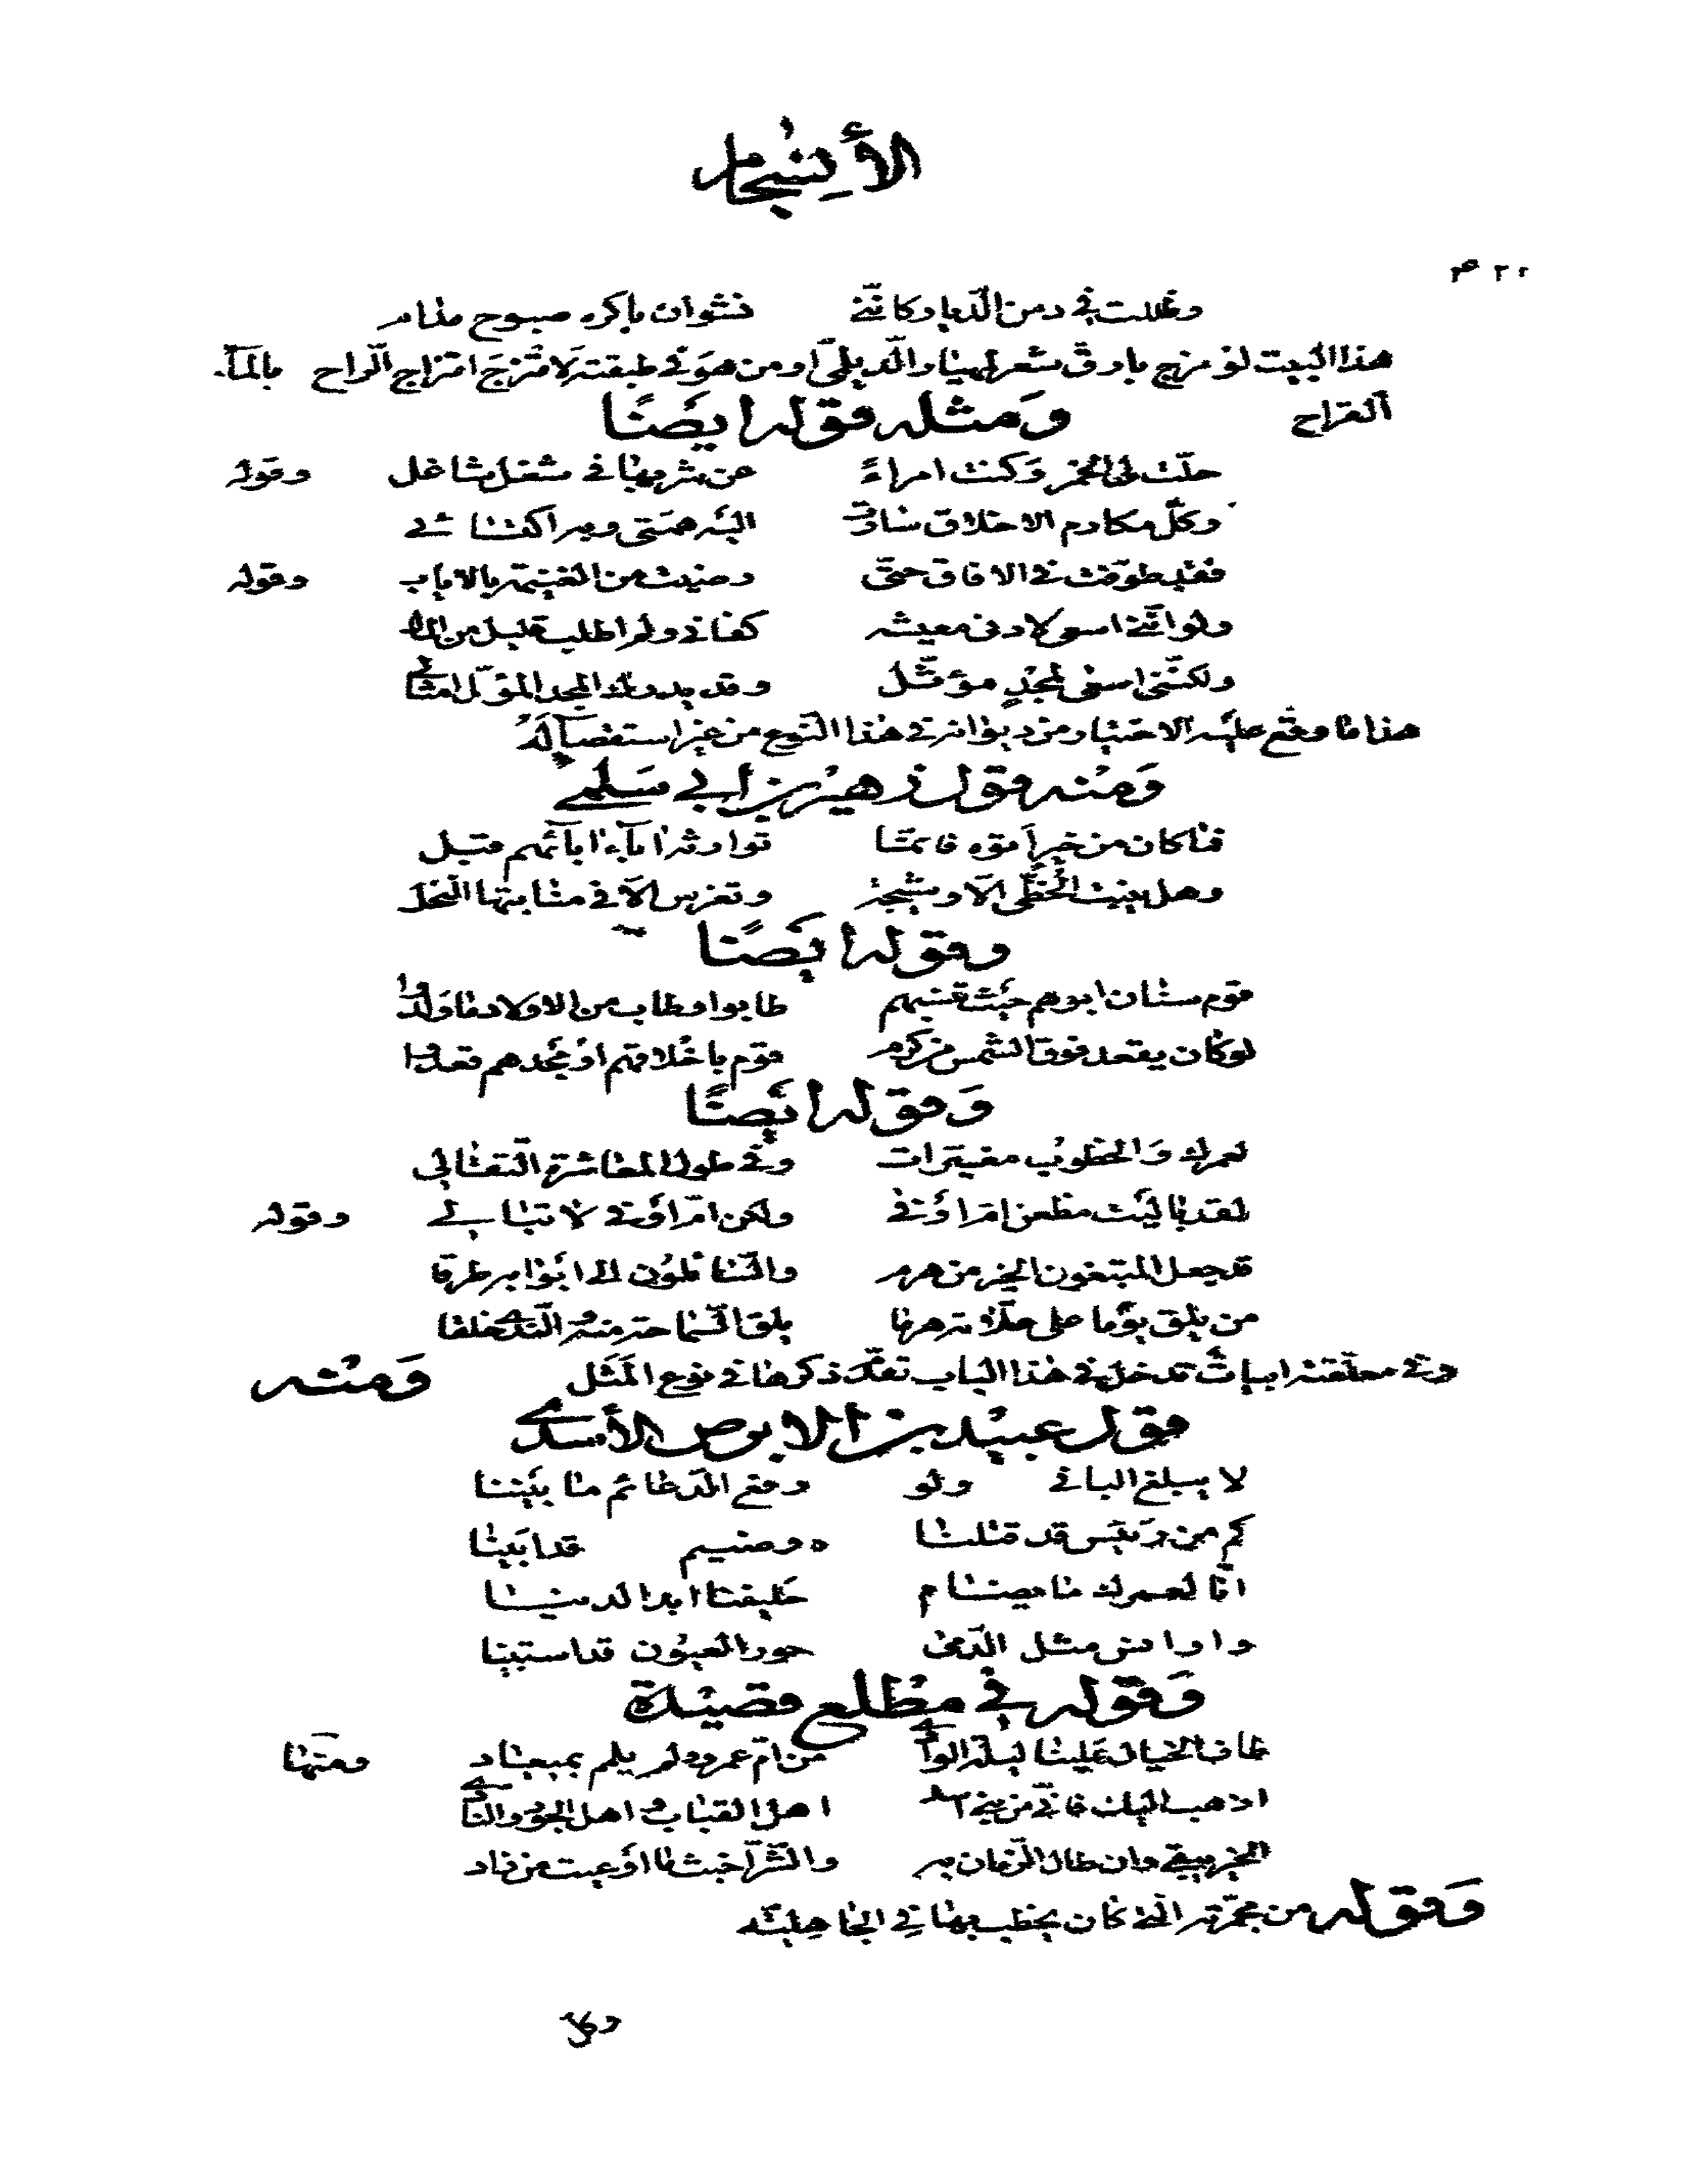 الأنسجام
وظللت في دمن الديار كأنني نشوان باكره صبوح مدام
هذا البيت لو مزج بارق شعر مهيار والديلمي او من هو في طبقته لامتزج امتزاج الراح بالماء
القراح ومثله قوله ايضًا
حلت لي الخمر وكنت امراءً عن شربها في شغل شاغل وقوله
وكل مكارم الاخلاق سارت اليه همتي وبه اكتسابي
فقد طوفت في الافاق حتى رضيت من الغنيمة بالاياب وقوله
ولو انني اسعى لادنى معيشه كفاني ولم اطلب قليل من المال
ولكنني اسعى لمجدٍ مؤثل وقد يدرك المجد المؤثل امثالي
هذا ما وقع عليه الاختيار من ديوانه في هذا النوع من غير استقصاءٍ له
ومنه قول زهير بن أبي سلمى
فما كان من خير أتوه فانما توارثه اباء ابائهم قبل
وهل ينبت الخطي الا وشيجه وتغرس الا في منابتها النخل
وقوله ايضًا
قوم سنان ابوهم حيث تنسبهم طابوا وطاب من الاولاد ما ولدوا
لو كان يقعد فوق الشمس من كرم قوم باخلاقهم او مجدهم قعدوا
وقوله ايضًا
لعمرك والخطوب مغيرات وفي طول المعاشرة التقالي
لقد باليت مظعن ام اوفى ولكن ام اوفى لا تبالي وقوله
قد جعل المبتغون الخير من هرم والسائلون الى ابوابه طرقا
من يلق يوما على علاته هرما يلق السماحة منه والندى خلقا
وفي معلقته ابيات تدخل في هذا الباب تقدم ذكرها في نوع المثل ومنه
قول عبيد بن الابرص الأسدي
لا يبلغ الباني ولو رفع الدعائم ما بنينا
كم من رئيس قد قتلنا ه وضيم قد ابينا
انا لعمرك ما يضام حليفنا ابدا لدينا
واوانس مثل الدمى حور العيون قد استبينا
وقوله في مطلع قصيدة
طاف الخيال علينا ليلة الوادي من ام عمرو ولم يلمم بميعاد ومنها
اذهب اليك فاني من بني اسد اهل القباب واهل الجود والنادي
الخير يبقى وان طال الزمان به والشر اخبث ما اوعيت من زاد
وقوله من مجمرته التي كان يخطب بها في الجاهلية
وكل